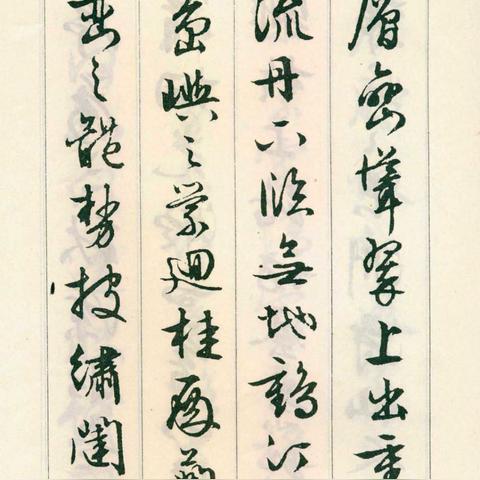 層巒聳翠上出重
流丹下臨無地鶴汀
島嶼之縈迴桂殿蘭
巒之體勢披繡闥